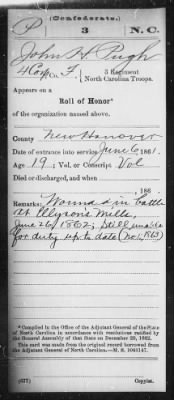 (Confederate.)
P 3 N.C.
John H Pugh
4 Corp, Co. F, 3 Regiment
North Carolina Troops.
Appears on a
Roll of Honor*
of the organization named above.
County New Hanover
Date of entrance into service June 6, 1861.
Age 19; Vol. or Conscript Vol
Died or discharged, and when
, 186 .
Remarks: Wounded in battle
at Ellyson's Mills,
June 26, 1862; Still unable
for duty up to date (Nov. 1863)
*Compiled in the Office of the Adjutant General of the State
of North Carolina in accordance with resolutions ratified by
the General Assembly of that State on December 20, 1862.
This card was made from the original record borrowed from
the Adjutant General of North Carolina.—M. S.
(637) Copyist.